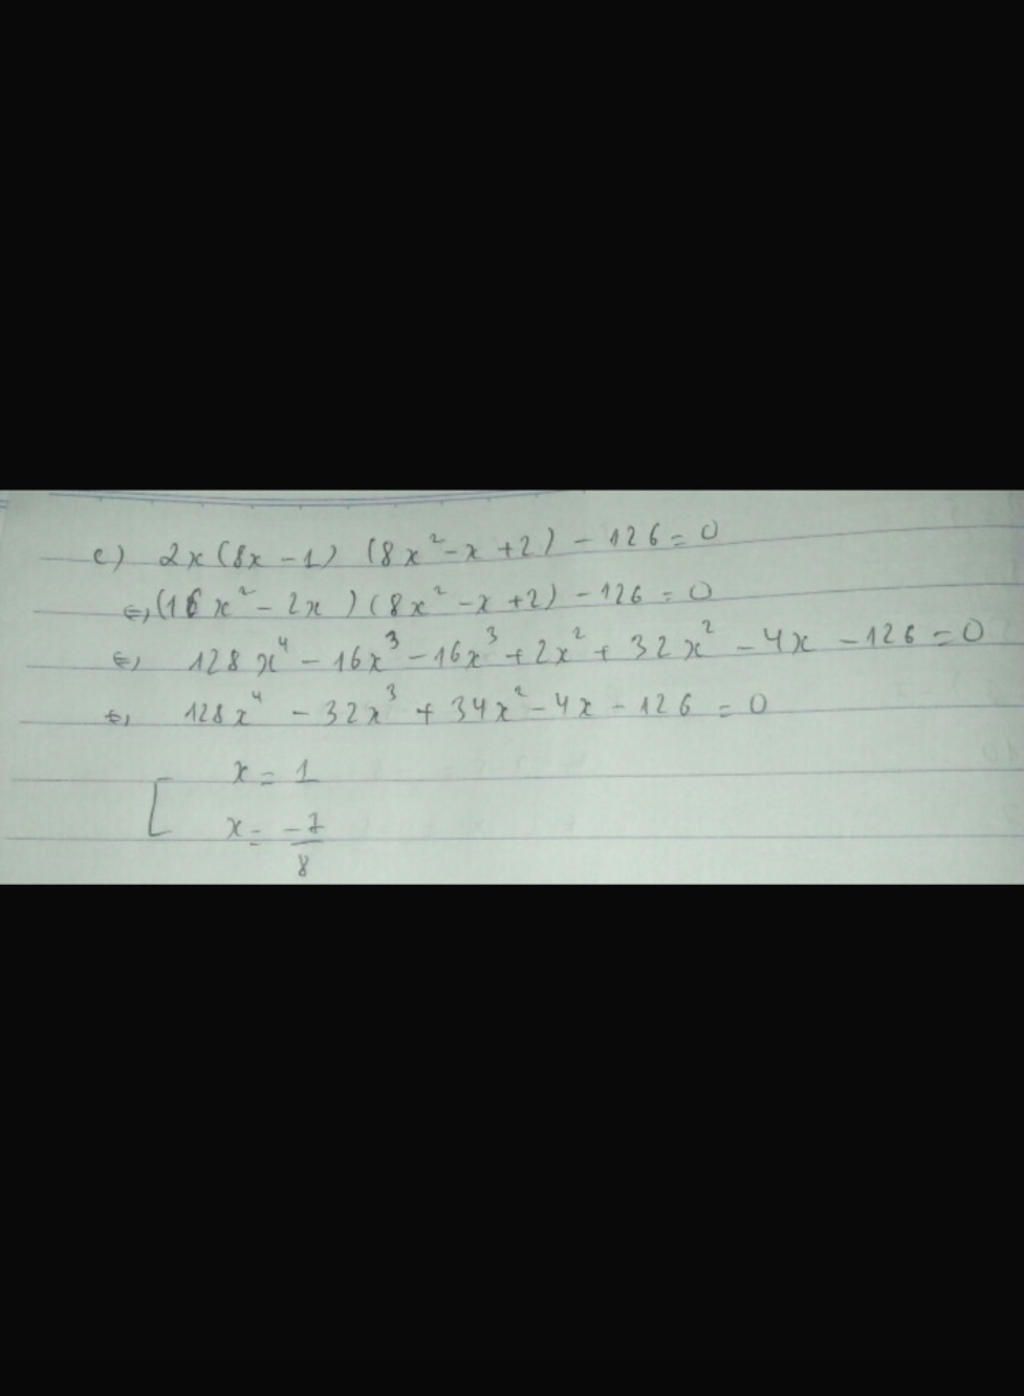 c) 2x(8x - 1) (8x² - x + 2) - 126 = 0
⇔ (16x² - 2x) (8x² - x + 2) - 126 = 0
⇔ 128x⁴ - 16x³ - 16x³ + 2x² + 32x² - 4x - 126 = 0
⇔ 128x⁴ - 32x³ + 34x² - 4x - 126 = 0
[ x = 1
x = -7/8